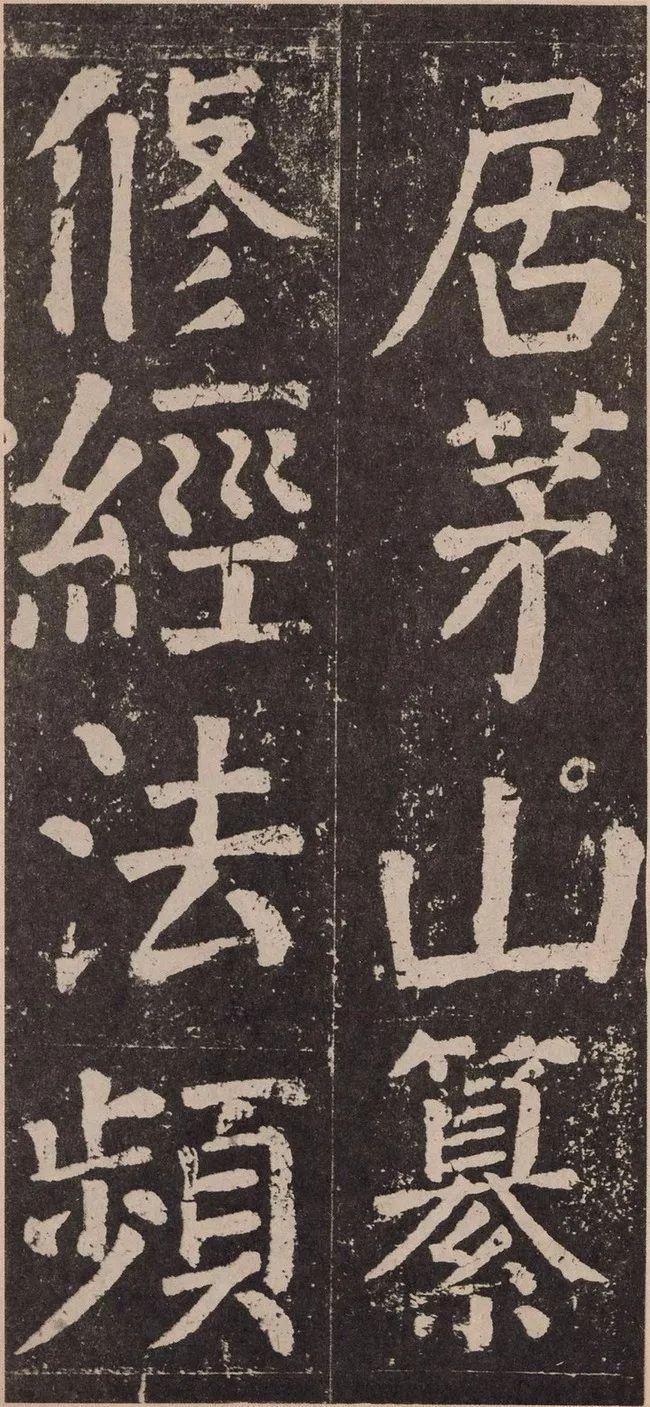 居茅山纂
修經法頻